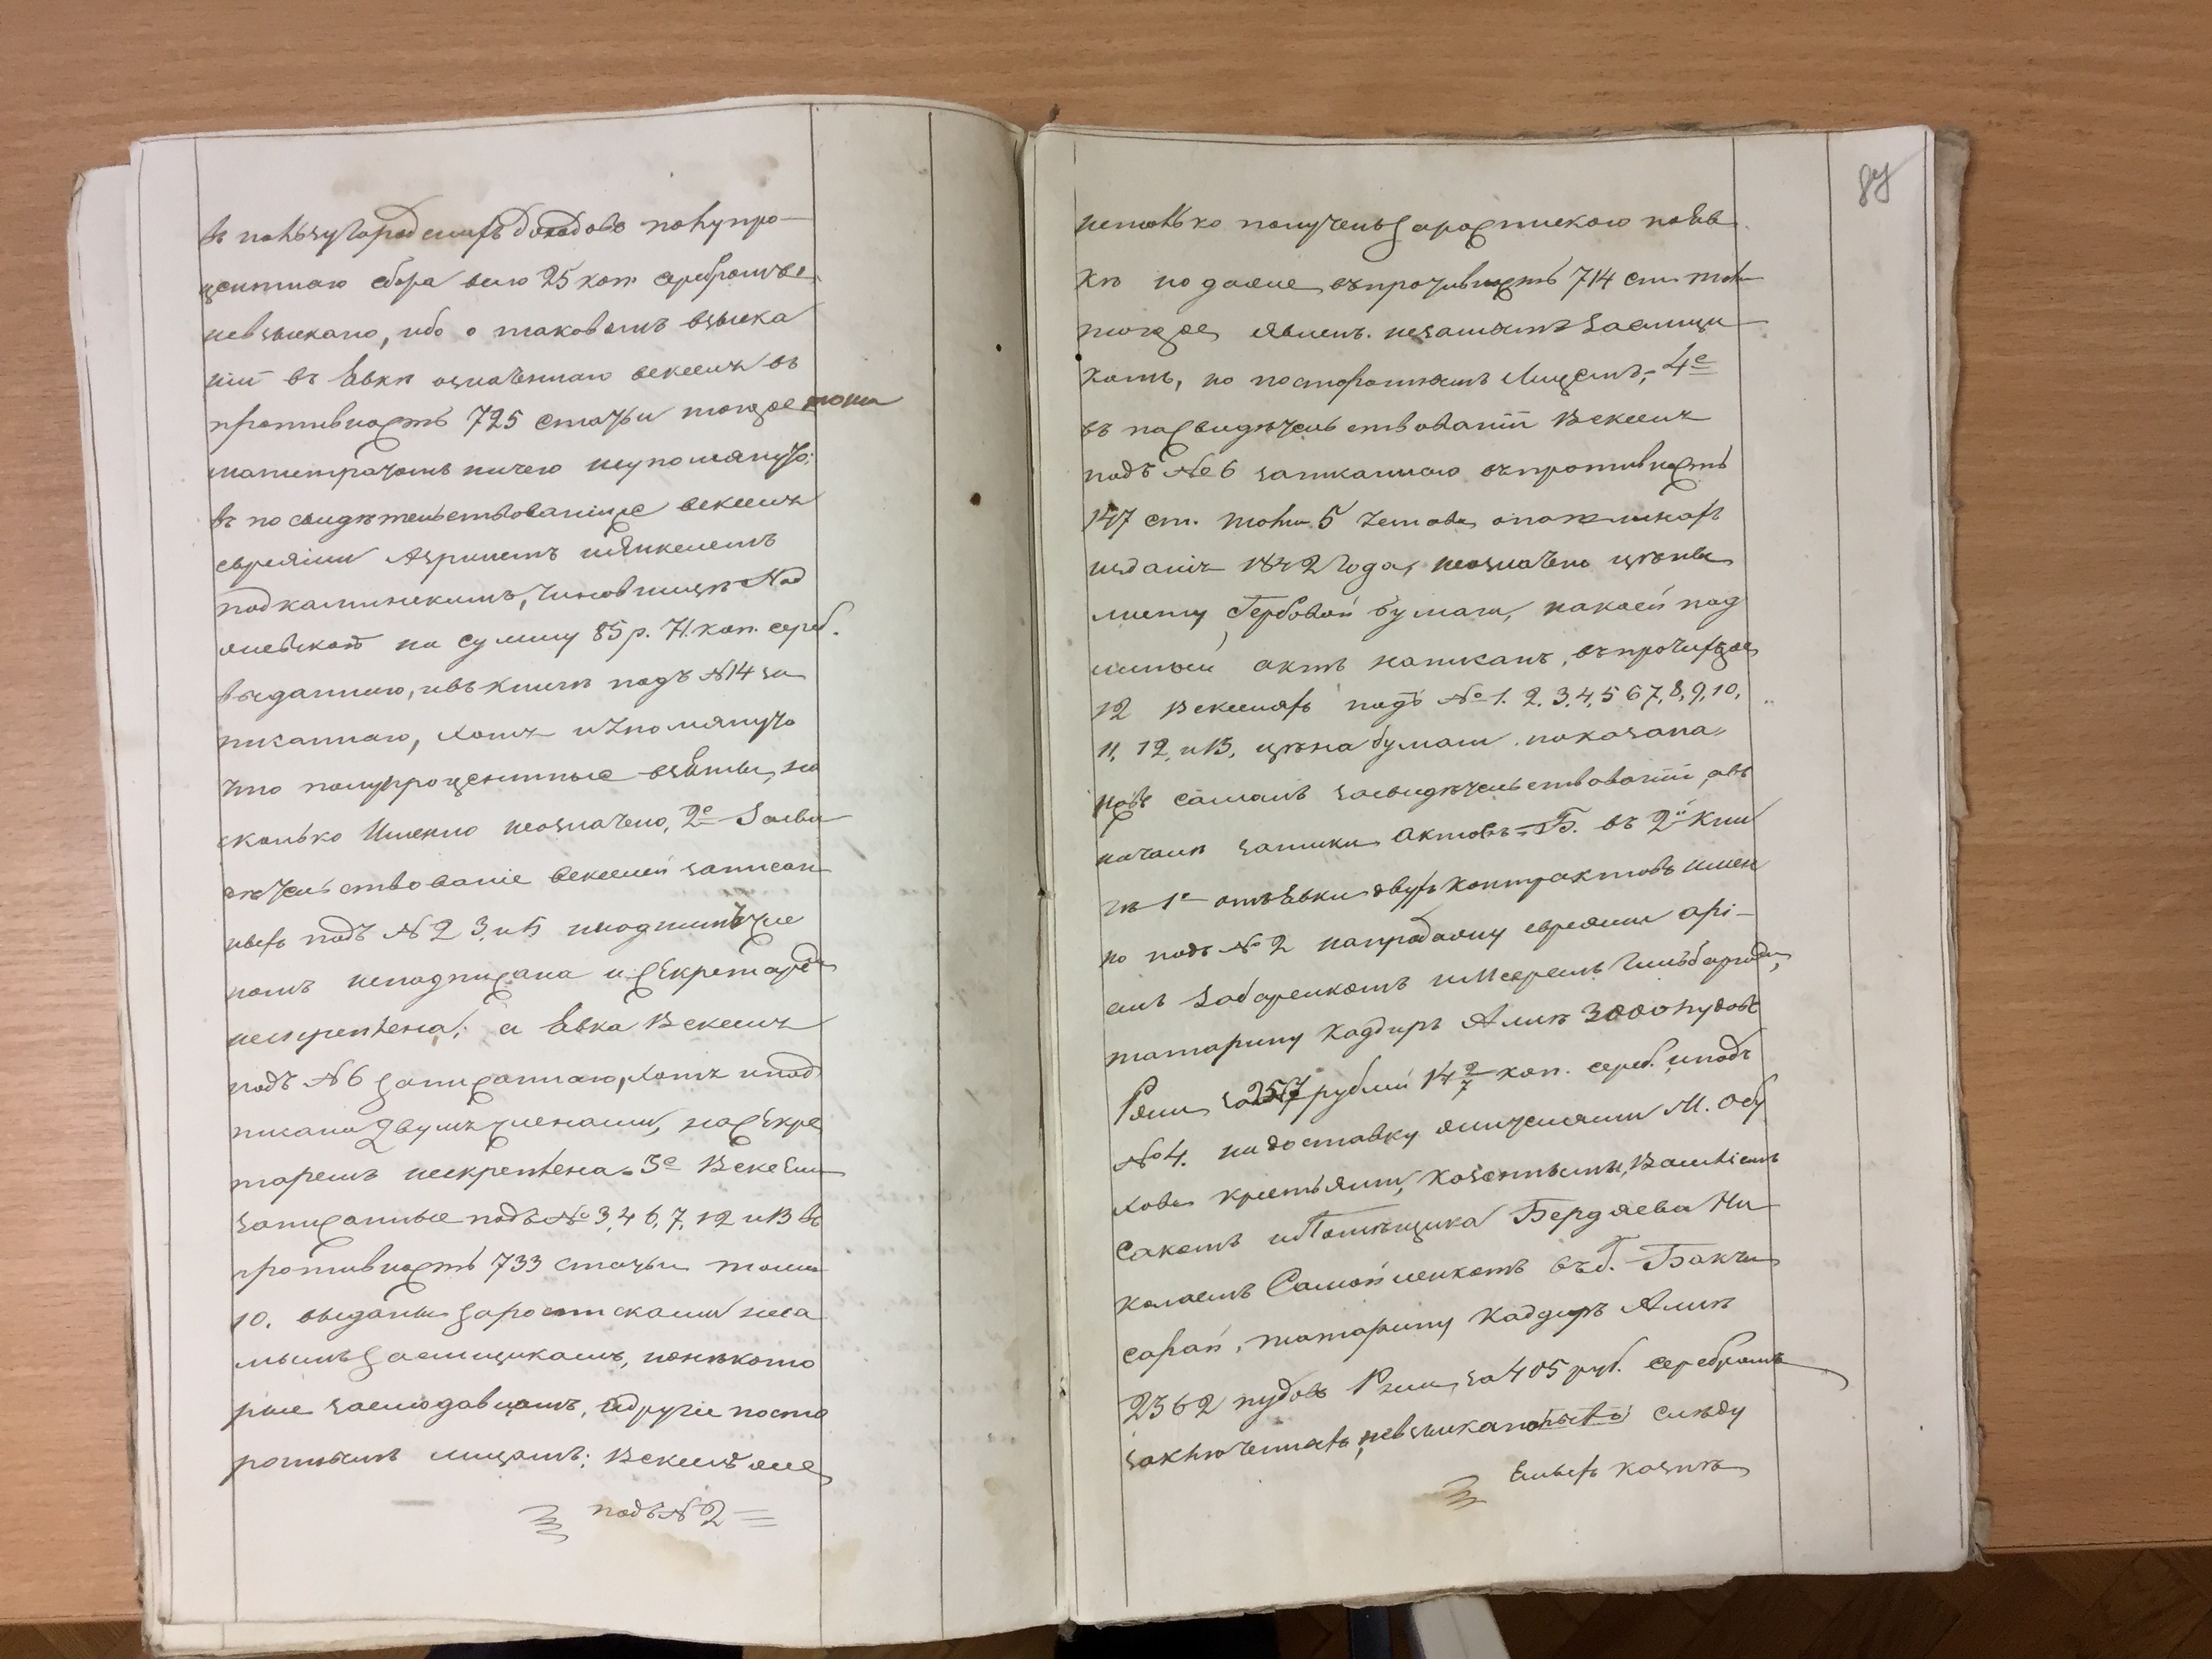 въ пользу городскихъ доходовъ полупро-
центнаго сбора всего 25 коп серебромъ не
взыскано, ибо о таковомъ взыска
ніи въ Явки означеннаго векселя въ
противность 725 статьи тогоже тома
магистратомъ ничего неупомянуто;
въ посвидѣтельствованіиже векселя
евреями и Янкелемъ
Подкаминскимъ, Чиновницѣ
на сумму 85 р. 71. коп. сереб.
выданнаго, ивъ книги подъ №14 за
писаннаго, хотя иупомянуто
что полупроцентные взяты, но
сколько Именно неозначено, 2е Засви
дѣтельствованіе векселей записан
ныхъ подъ № 2 3, и 5 ниоднимъ чле
номъ неподписана и Секретаремъ
нескреплена; а Явка Векселя
подъ №6 записаннаго, хотя ипод
писана двумя членами, но Секре
таремъ нескреплена. 3е Векселя
записанные подъ № 3, 4 6, 7, 12 и 13 въ
противность 733 статьи тома
10. выданы заросписками неса
мымъ заемщикамъ, но нѣкото
рые заемодавцамъ, а другіе посто
роннимъ лицамъ; Вексель же
подъ №2
84
нетолько полученъ заросписко по Яв
кѣ но далее въпротивность 714 ст. тогоже
явленъ. несамимъ Заемщи
комъ, но постороннимъ Лицемъ, 4е
въ посвидѣтельствованіи Векселя
подъ №6 записаннаго въпротивность
147 ст. тома 5 Устава о пошлинахъ
изданія 1842 года, неозначено цѣны
листу Гербовой бумаги, накоей под
линный актъ написанъ, въпрочихъже
12 Векселяхъ подъ № 1. 2. 3. 4. 5 6 7, 8, 9, 10,
11, 12, и 13, цѣна бумаги показана
не въ самомъ засвидѣтельствованіи, а въ
началѣ записки актовъ. Б. въ 2й Кни
гѣ 1е отъ Явки двухъ контрактовъ имен
но подъ № 2 напродажу евреями
и
татарину Кадыръ Алиѣ 3000 пудовъ
Ржи за 257 рублей 14 2/7 коп. сереб. и подъ
№4. на доставку жителями М. Обу
хова крестьянами, Казенными, Василіемъ
Сакомъ и Помѣщика Бердяева Ни
колаемъ Самойленкомъ въ г. Бакчи
сарай, татарину Кадыръ Алиѣ
2362 пудовъ Ржи, за 405 руб. серебромъ
заключенныхъ, невзыскано следу
Емыхъ казнѣ